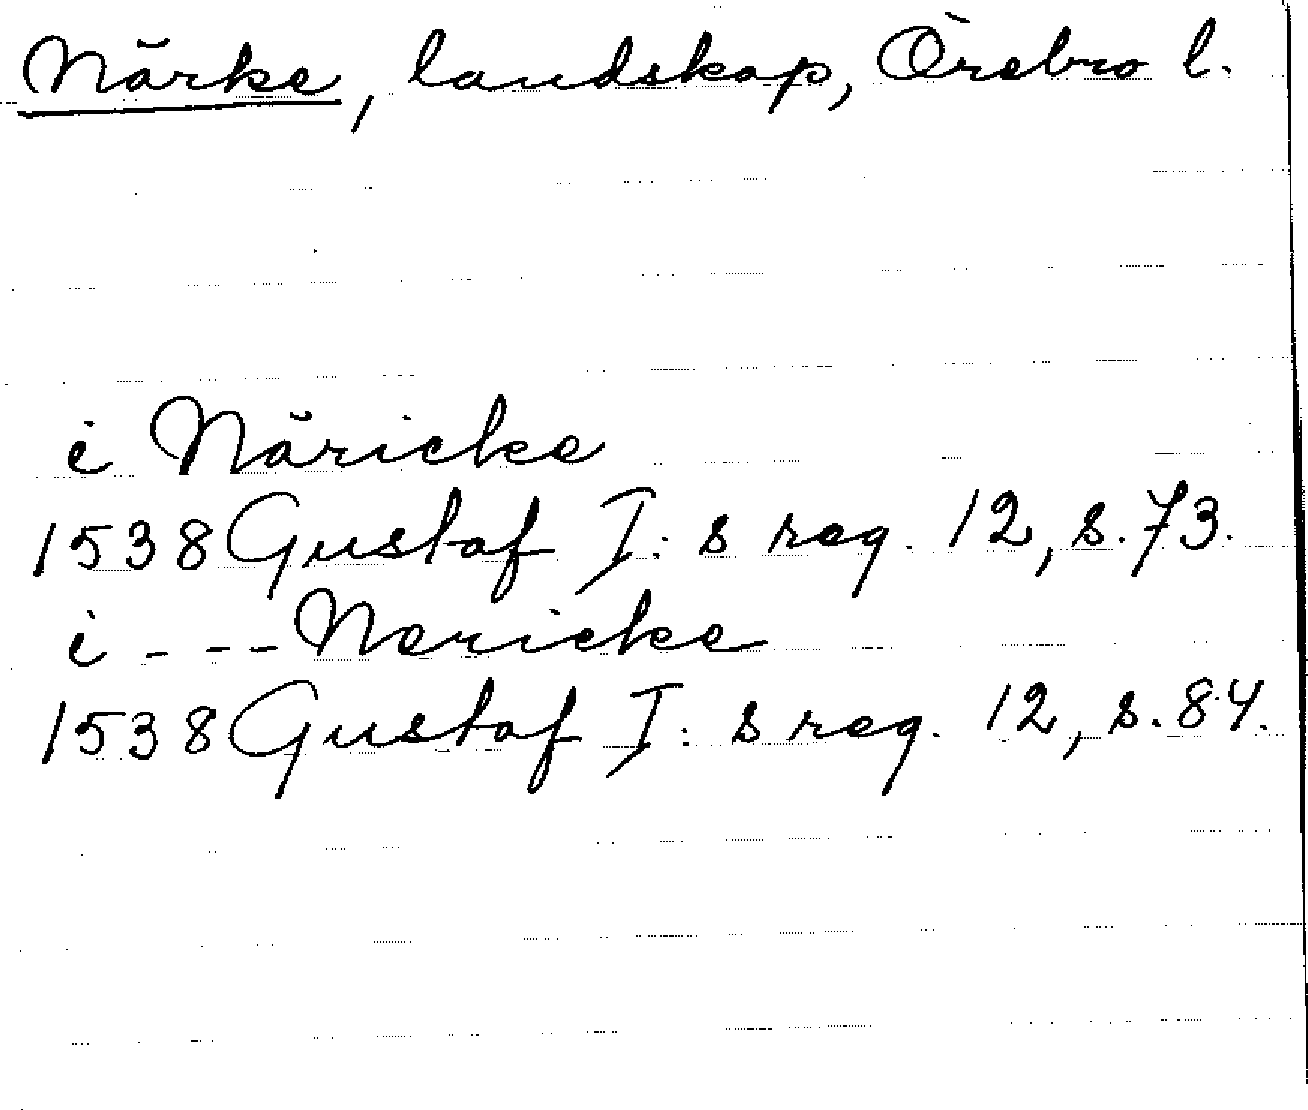 Närke, landskap, Örebro l.
i Näricke
1538 Gustaf I:s reg. 12, s. 73.
i - - - Nericke
1538 Gustaf I:s reg. 12, s. 84.